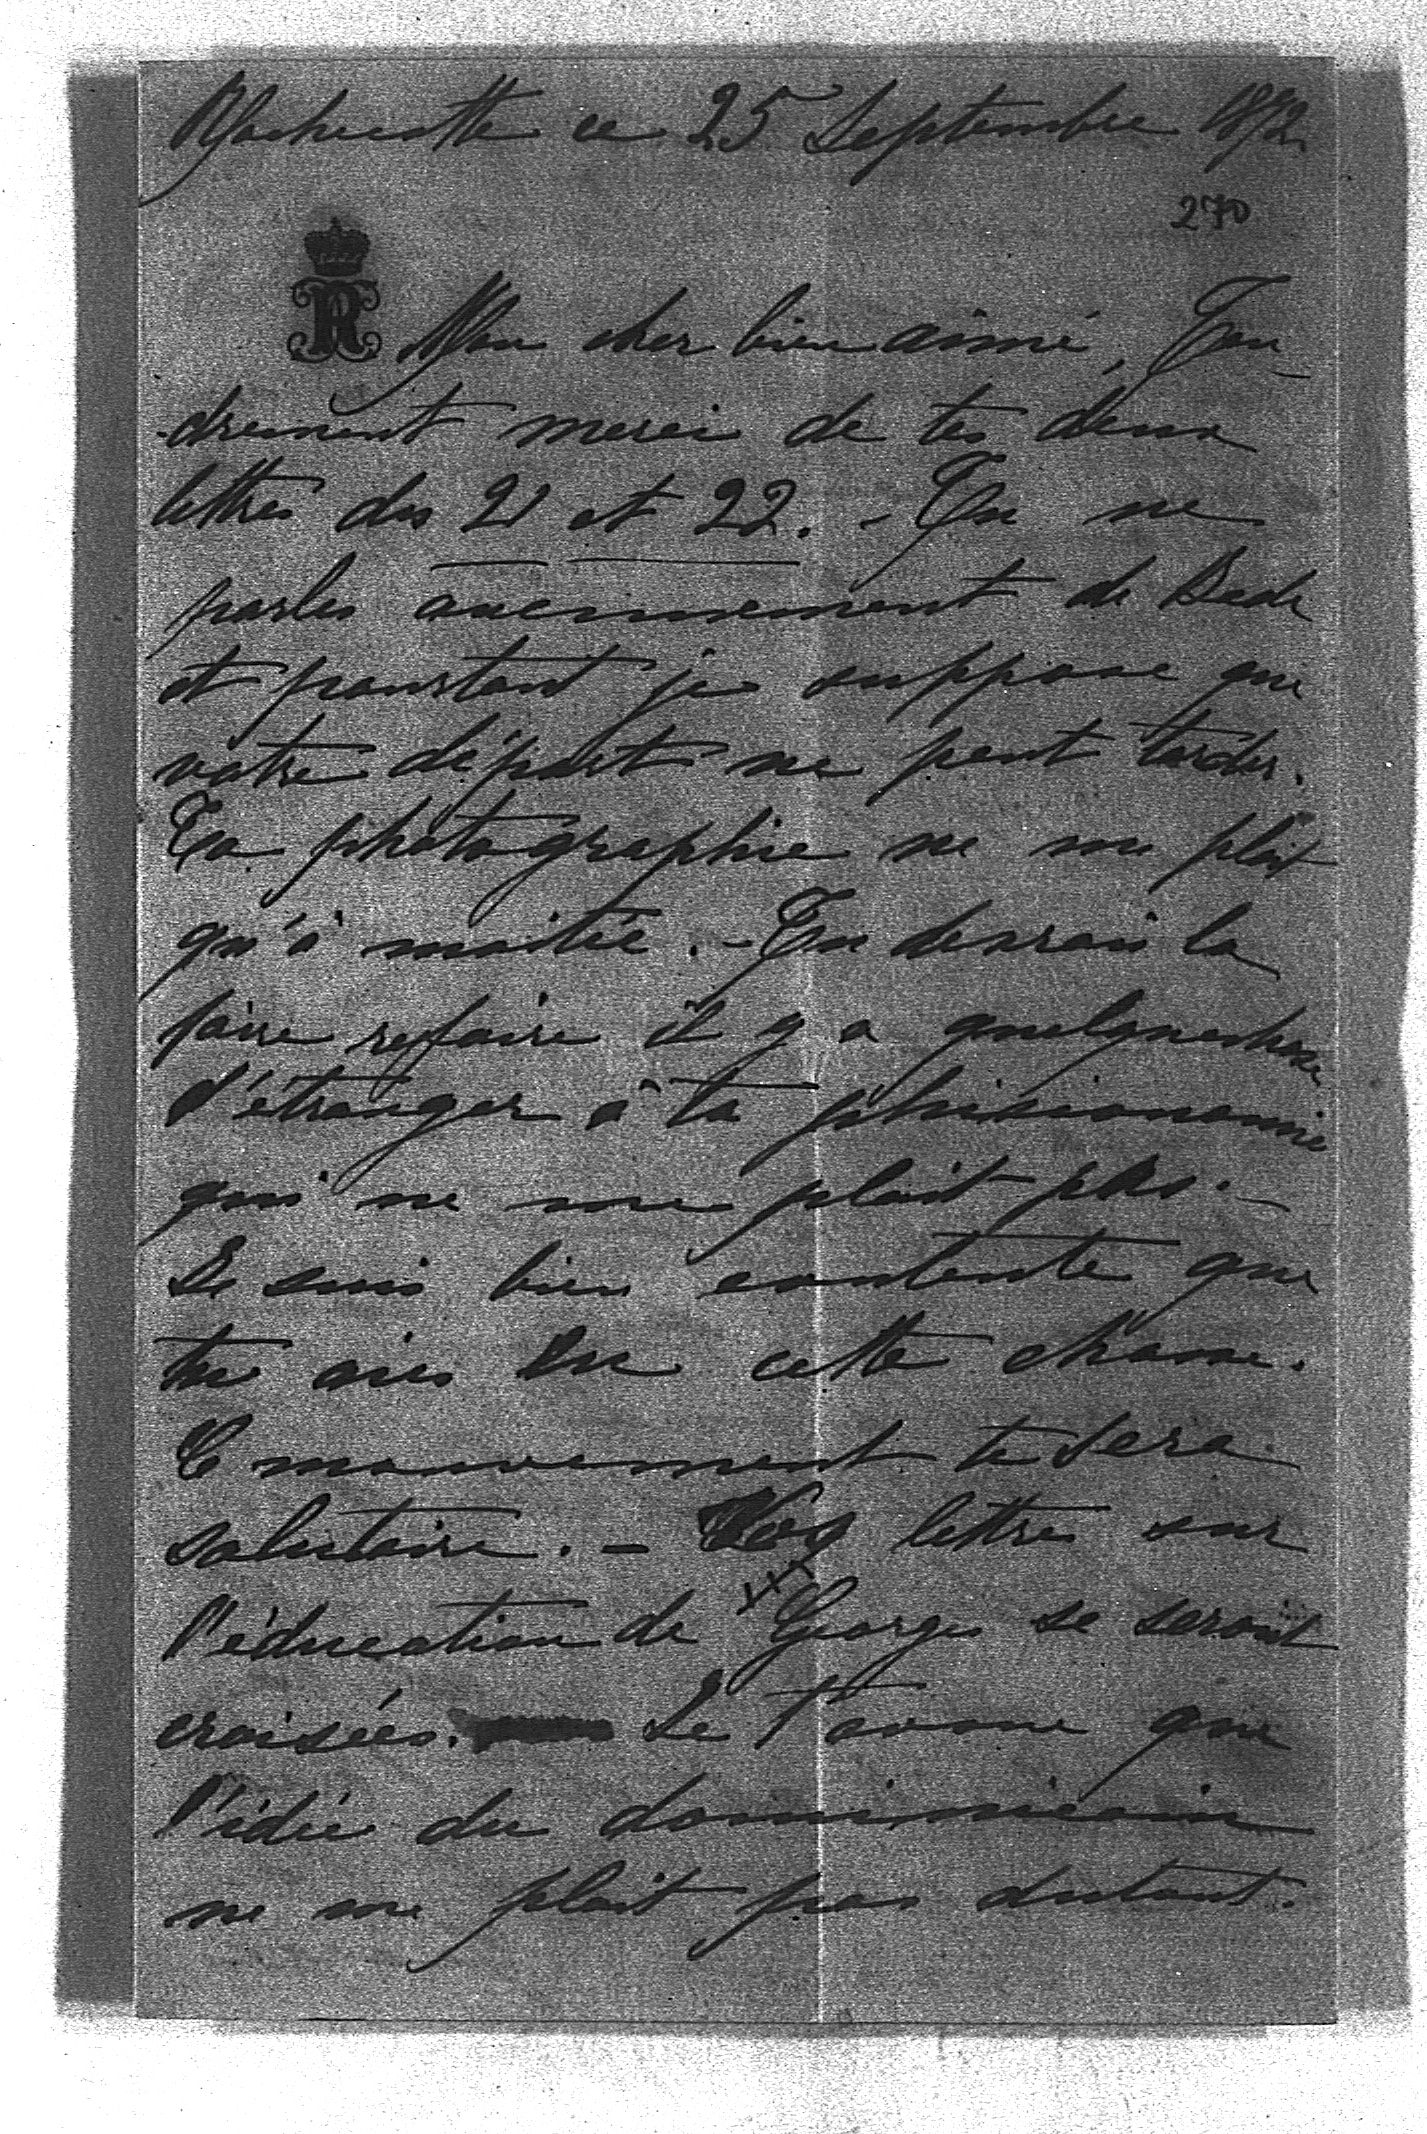 ce 25 Septembre 1872
270
R
Mon cher bien aimé, Ten-
-drement merci de tes deux
lettres des 21 et 22. - Tu ne
parles aucunement de Bade
et pourtant je suppose que
votre départ ne peut tarder.
Ta photographie ne me plait
qu'à moitié. - Tu devrais la
faire refaire il y a quelquechose
d'étranger à ta phisionomie
qui ne me plait pas. -
Je suis bien contente que
tu aies eu cette chasse.
Ce mouvement te sera
salutaire. - Nos lettres sur
l'éducation de Georges se seront
croisées. Je t'avoue que
l'idée du dominicain
ne me plait pas dutout.